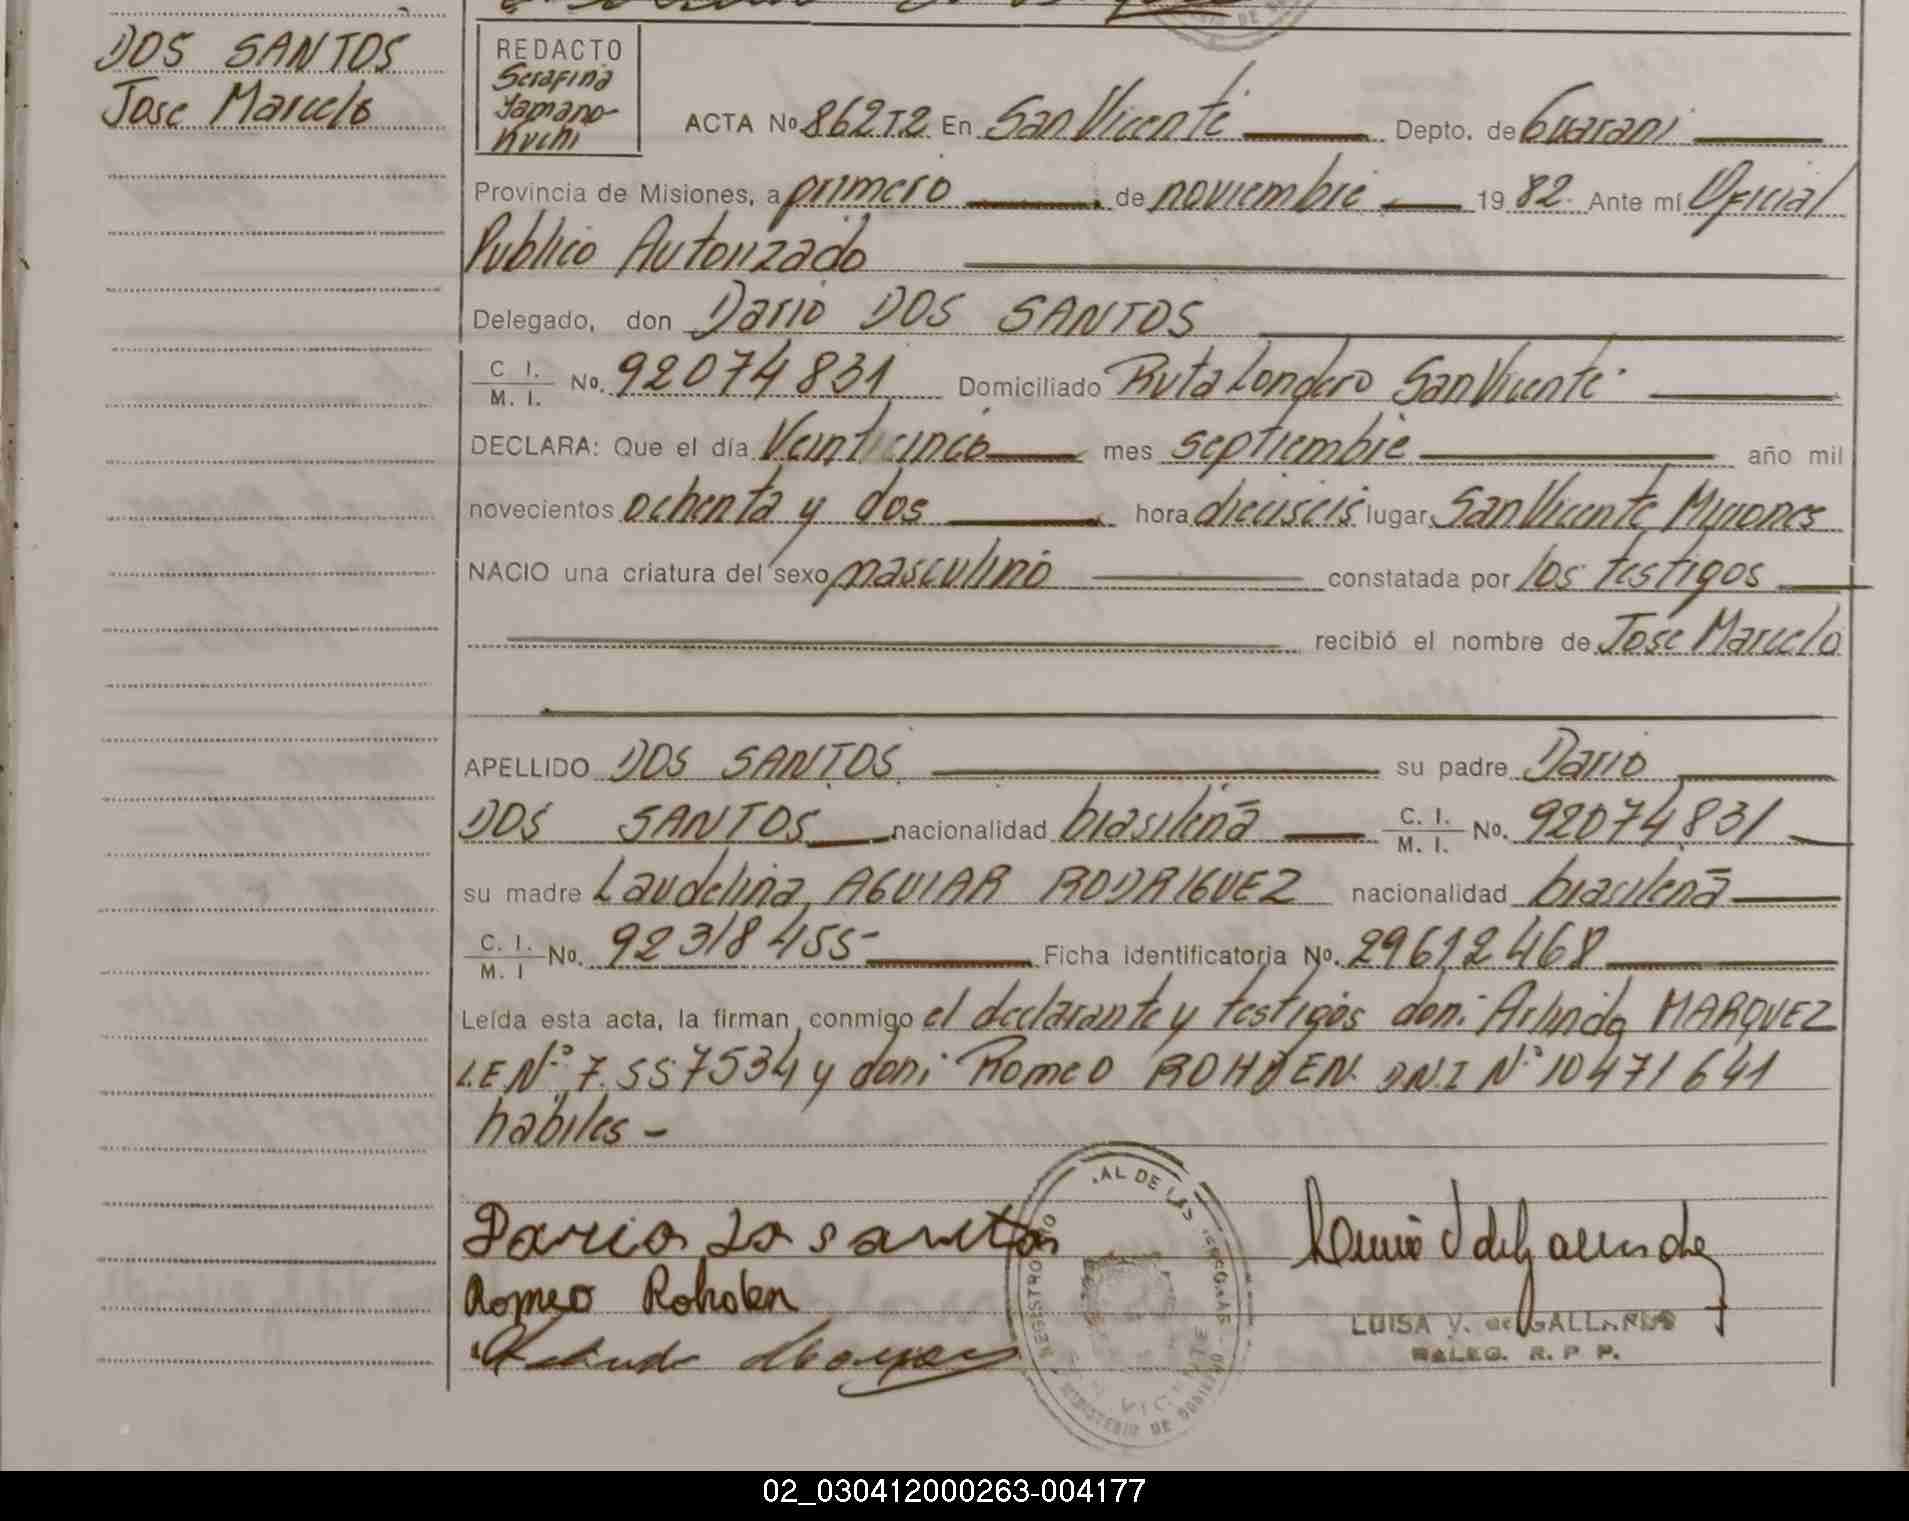 DOS SANTOS
Jose Marcelo
REDACTO
Serafina
Yamano-
kuchi
ACTA No 862T2 En San Vicente Depto. de Guarani
Provincia de Misiones, a primero de noviembre 19 82. Ante mí Oficial
Publico Autorizado
Delegado, don Dario DOS SANTOS
C. I. / M. I. No. 92074831 Domiciliado Ruta Londero San Vicente
DECLARA: Que el día Veinticinco mes septiembre año mil
novecientos ochenta y dos hora dieciseis lugar San Vicente Misiones
NACIO una criatura del sexo masculino constatada por los testigos
recibió el nombre de Jose Marcelo
APELLIDO DOS SANTOS su padre Dario
DOS SANTOS nacionalidad brasileña C. I. / M. I. No. 92074831
su madre Laudelina AGUIAR RODRIGUEZ nacionalidad brasileña
C. I. / M. I No. 92318455 Ficha identificatoria No. 29612468
Leída esta acta, la firman conmigo el declarante y testigos don: Arlindo MARQUEZ
L.E Nº 7.557534 y don: Romeo ROHDEN. D.N.I Nº 10471641
habiles -
Dario Do santos
Romeo Rohden
LUISA V. de GALLARDO
DELEG. R. P. P.
MINISTERIO DE GOBIERNO
02_030412000263-004177